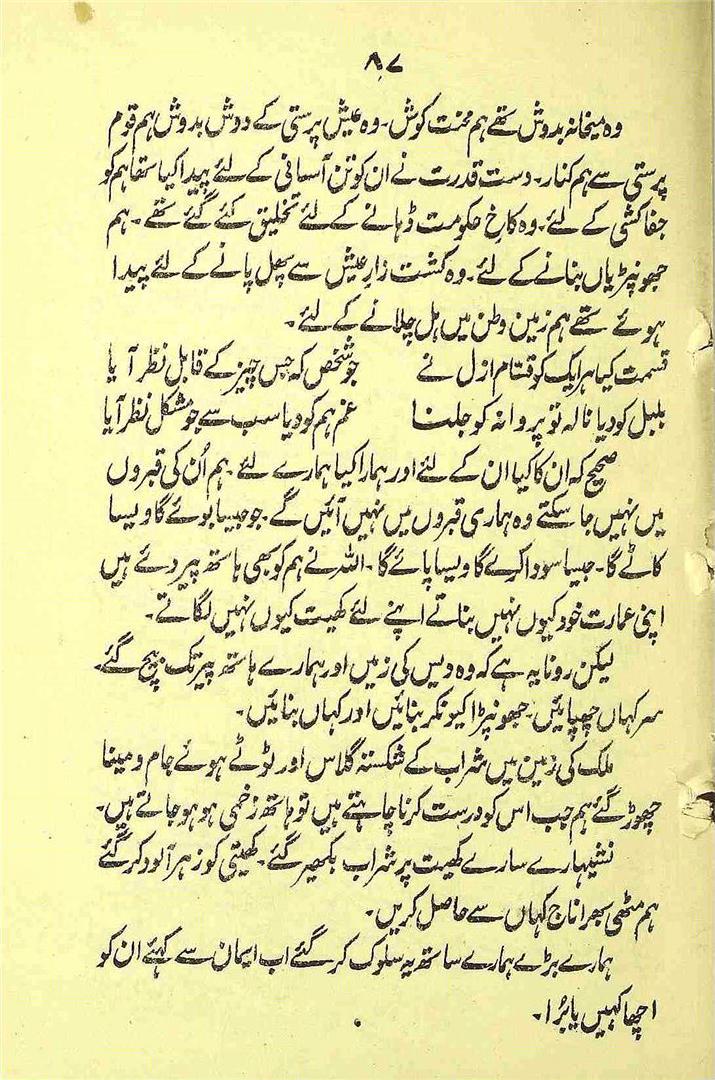 ۸۷
وہ میخانہ بدوش تھے ہم محنت کوش۔ وہ عیش پرستی کے دوش بدوش ہم قوم
پرستی سے ہم کنار۔ دست قدرت نے ان کو تن آسانی کے لئے پیدا کیا تھا ہم کو
جفا کشی کے لئے۔ وہ کاخِ حکومت ڈہانے کے لئے تخلیق کئے گئے تھے۔ ہم
جھونپڑیاں بنانے کے لئے۔ وہ کشت زارِ عیش سے پھل پانے کے لئے پیدا
ہوئے تھے ہم زمین وطن میں ہل چلانے کے لئے۔
قسمت کیا ہر ایک کو قسّام ازل نے جو شخص کہ جس چیز کے قابل نظر آیا
بلبل کو دیا نالہ تو پروانہ کو جلنا غم ہم کو دیا سب سے جو مشکل نظر آیا
صحیح کہ ان کا کیا ان کے لئے اور ہمارا کیا ہمارے لئے ہم اُن کی قبروں
میں نہیں جا سکتے وہ ہماری قبروں میں نہیں آئیں گے۔ جو جیسا بوئے گا ویسا
کاٹے گا۔ جیسا سودا کرے گا ویسا پائے گا۔ اللہ نے ہم کو بھی ہاتھ پیر دئے ہیں
اپنی عمارت خود کیوں نہیں بناتے اپنے لئے کھیت کیوں نہیں لگاتے۔
لیکن رونا یہ ہے کہ وہ دیس کی زمیں اور ہمارے ہاتھ پیر تک بیچ گئے۔
سر کہاں چھپائیں۔ جھونپڑا کیونکر بنائیں اور کہاں بنائیں۔
ملک کی زمین میں شراب کے شکستہ گلاس اور ٹوٹے ہوئے جام و مینا
چھوڑ گئے ہم جب اس کو درست کرنا چاہتے ہیں تو ہاتھ زخمی ہو ہو جاتے ہیں۔
نشیہارے سارے کھیت پر شراب بکھیر گئے۔ کھیتی کو زہر آلود کر گئے
ہم مٹھی بھر اناج کہاں سے حاصل کریں۔
ہمارے بڑے ہمارے ساتھ یہ سلوک کر گئے اب ایمان سے کہئے ان کو
اچھا کہیں یا بُرا۔